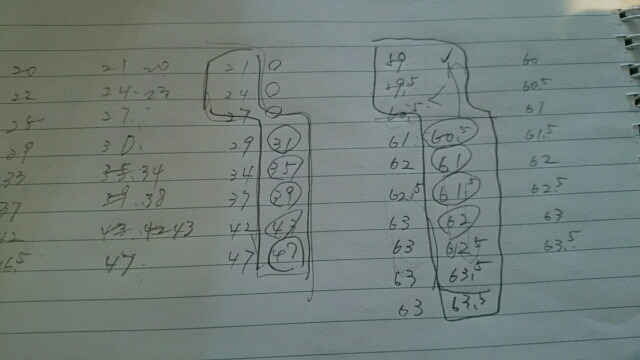 20 21 20 21 0 59 ✓ 60
22 24.23 24 0 59,5 < 60,5
25 27. 27 0 60,5 61
29 30. 29 31 61 60,5 61,5
33 35.34 34 35 62 61 62
37 39.38 37 39 62,5 61,5 62,5
42 43.42 43 42 43 63 62 63
46,5 47 47 47 63 62,5 63,5
63 63,5
63 63,5